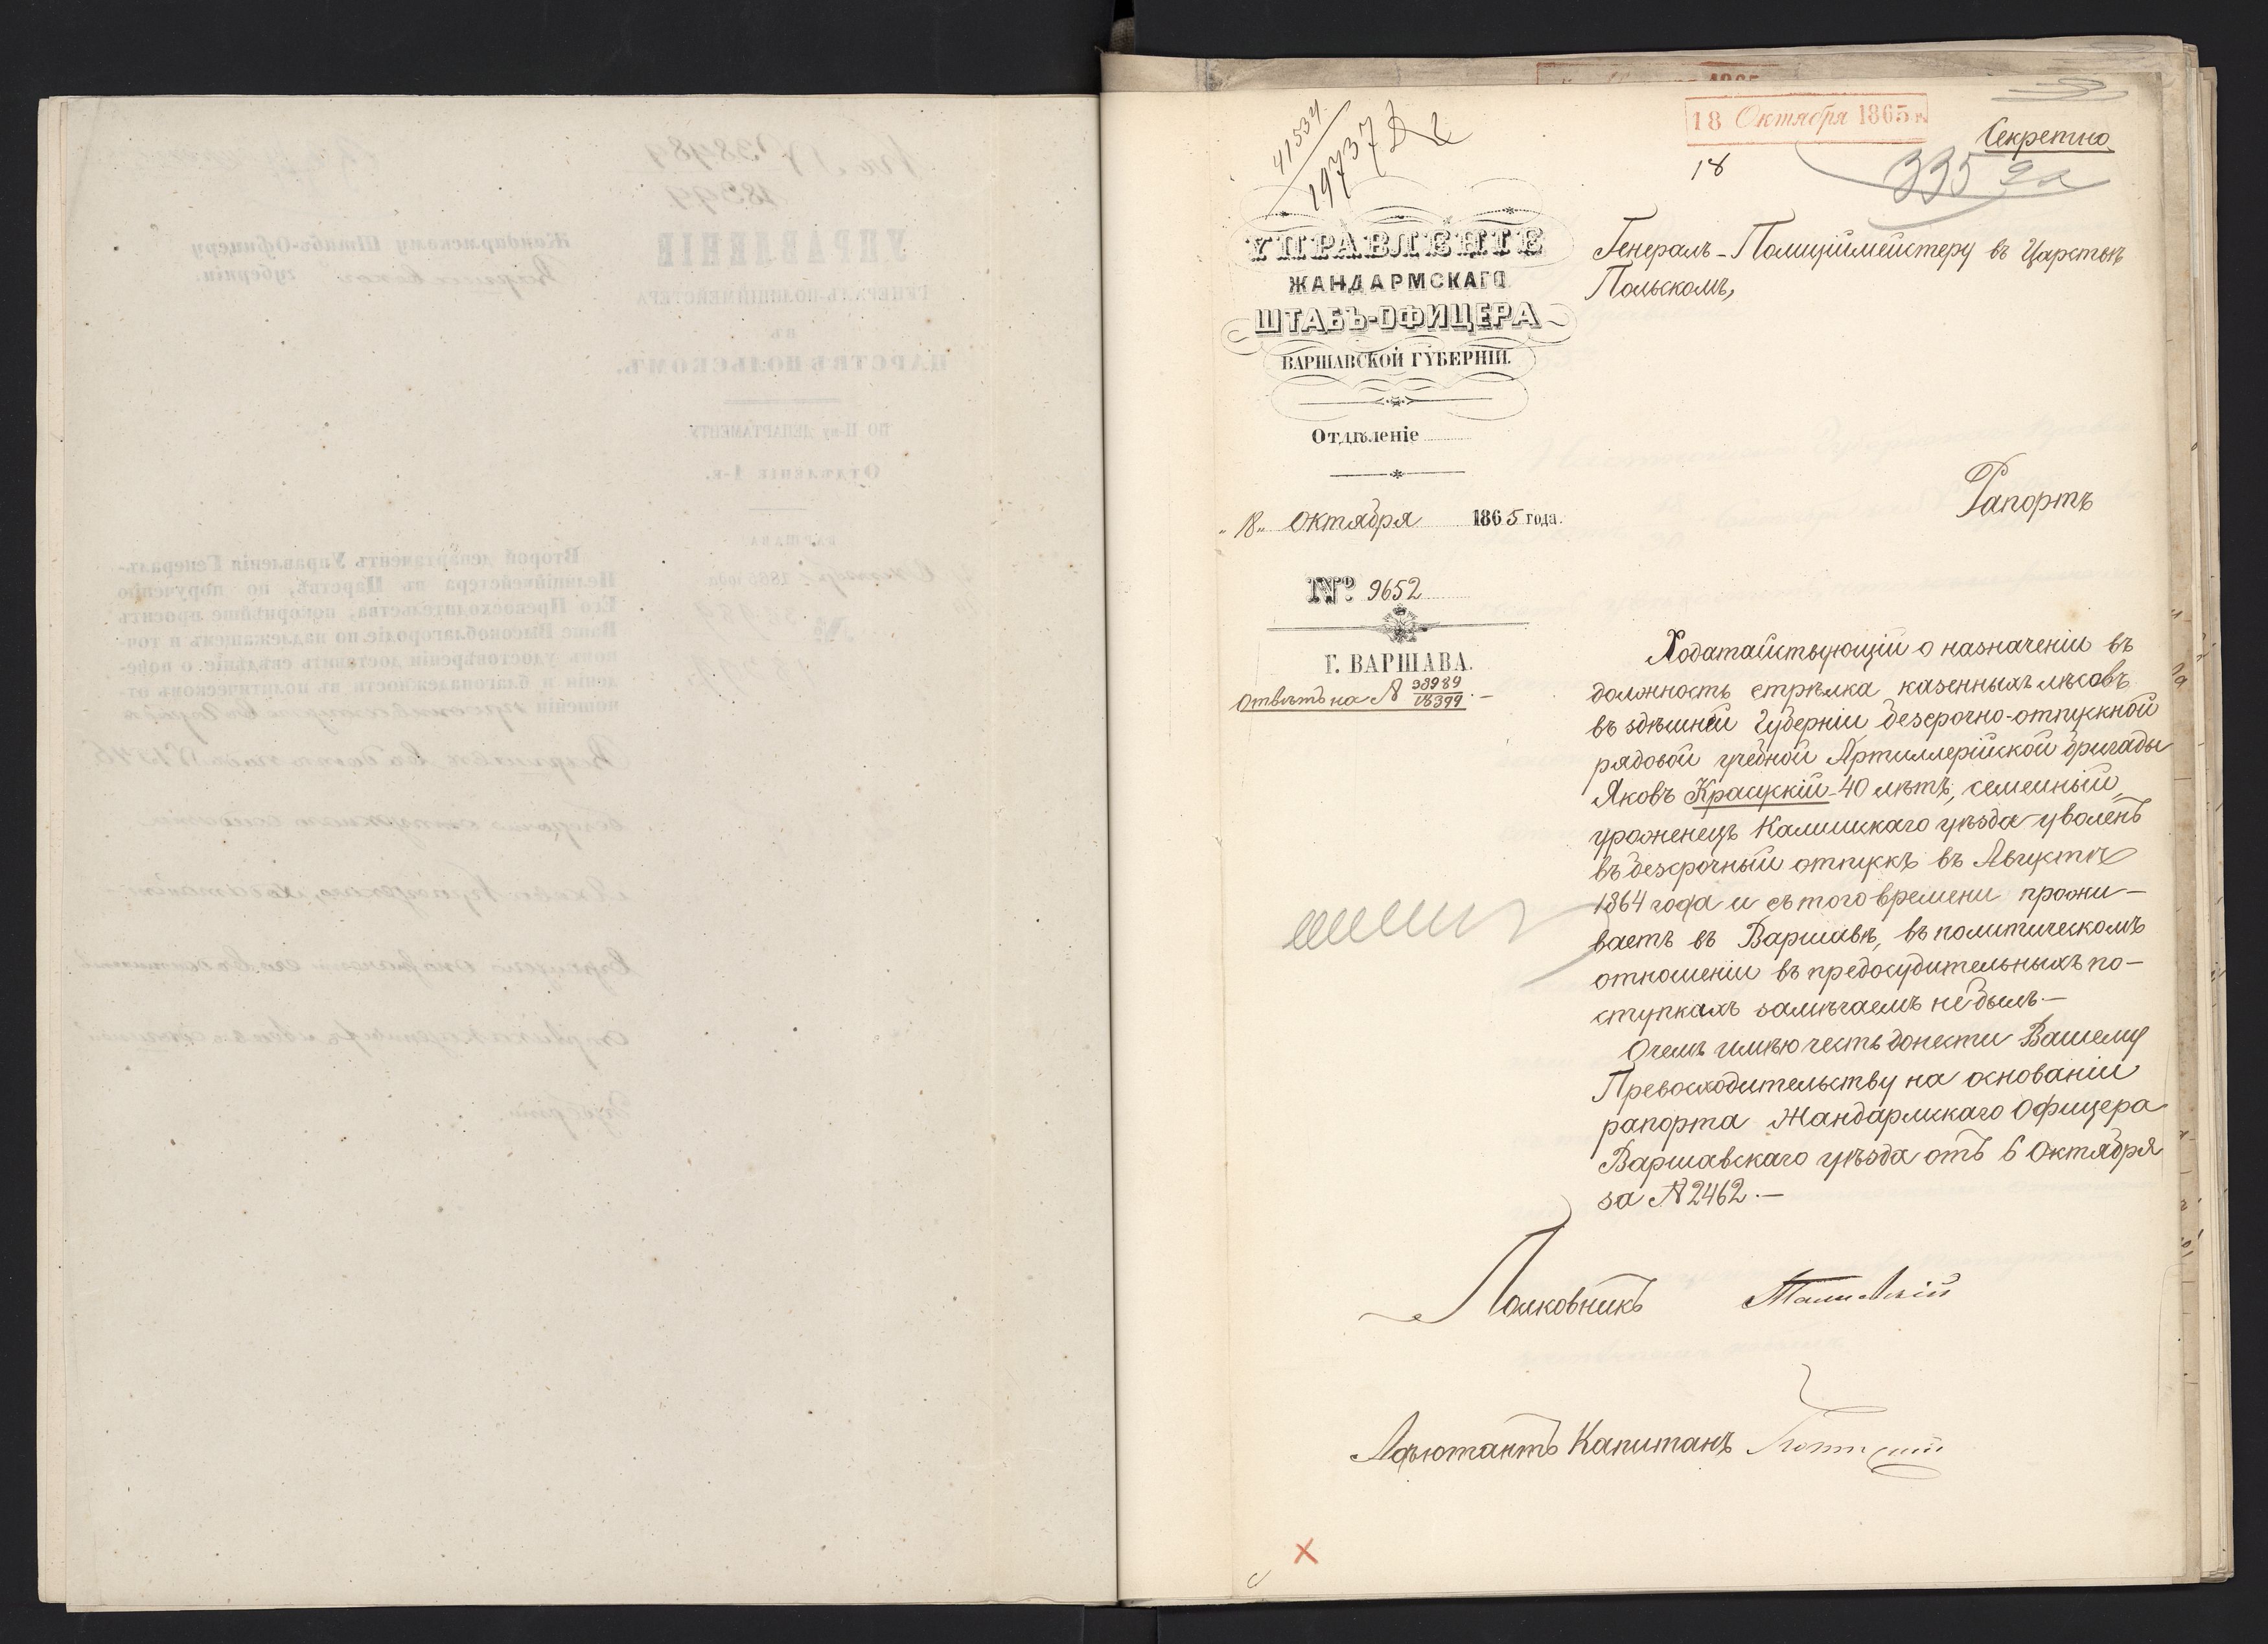 18 Октября 1865 г.
Секретно
41534
19737
18
335
УПРАВЛЕНІЕ
ЖАНДАРМСКАГО
ШТАБЪ-ОФИЦЕРА
ВАРШАВСКОЙ ГУБЕРНІИ.
Отдѣленіе
„18„ Октября 1865 года.
№ 9652
Г. ВАРШАВА.
Отвѣтъ на № 38989
18399
Генералъ-Полиціймейстеру въ Царствѣ
Польскомъ,
Рапортъ
Ходатайствующій о назначеніи въ
должность стрѣлка казенныхъ лѣсовъ
въ здѣшней Губерніи безсрочно-отпускной
рядовой учебной Артиллерійской бригады
Яковъ Красуцкій 40 лѣтъ, семейный,
уроженецъ Калишскаго уѣзда уволенъ
въ безсрочный отпускъ въ Августѣ
1864 года и съ того времени прожи-
ваетъ въ Варшавѣ, въ политическомъ
отношеніи въ предосудительныхъ по-
ступкахъ замѣчаемъ не былъ.—
О чемъ имѣю честь донести Вашему
Превосходительству на основаніи
рапорта Жандармскаго Офицера
Варшавскаго уѣзда отъ 6 Октября
за № 2462.—
Полковникъ
Адъютантъ Капитанъ